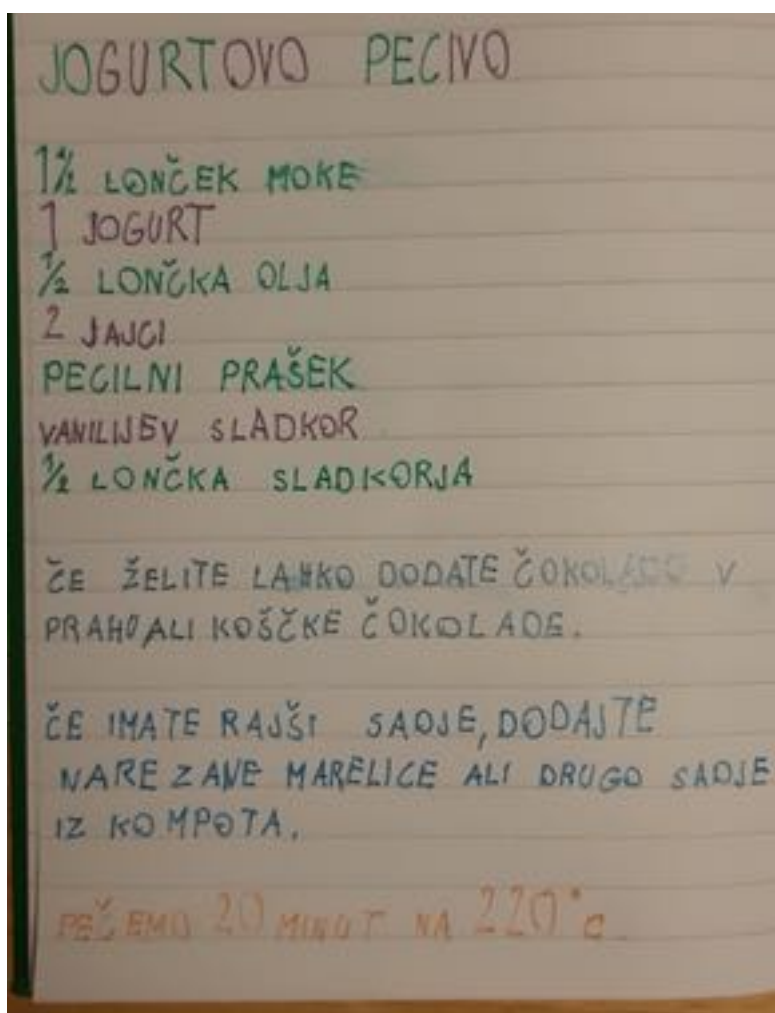 JOGURTOVO PECIVO
1 1/2 LONČEK MOKE
1 JOGURT
1/2 LONČKA OLJA
2 JAJCI
PECILNI PRAŠEK
VANILIJEV SLADKOR
1/2 LONČKA SLADKORJA
ČE ŽELITE LAHKO DODATE ČOKOLADO V
PRAHU ALI KOŠČKE ČOKOLADE.
ČE IMATE RAJŠI SADJE, DODAJTE
NAREZANE MARELICE ALI DRUGO SADJE
IZ KOMPOTA.
PEČEMO 20 MINUT NA 220°C